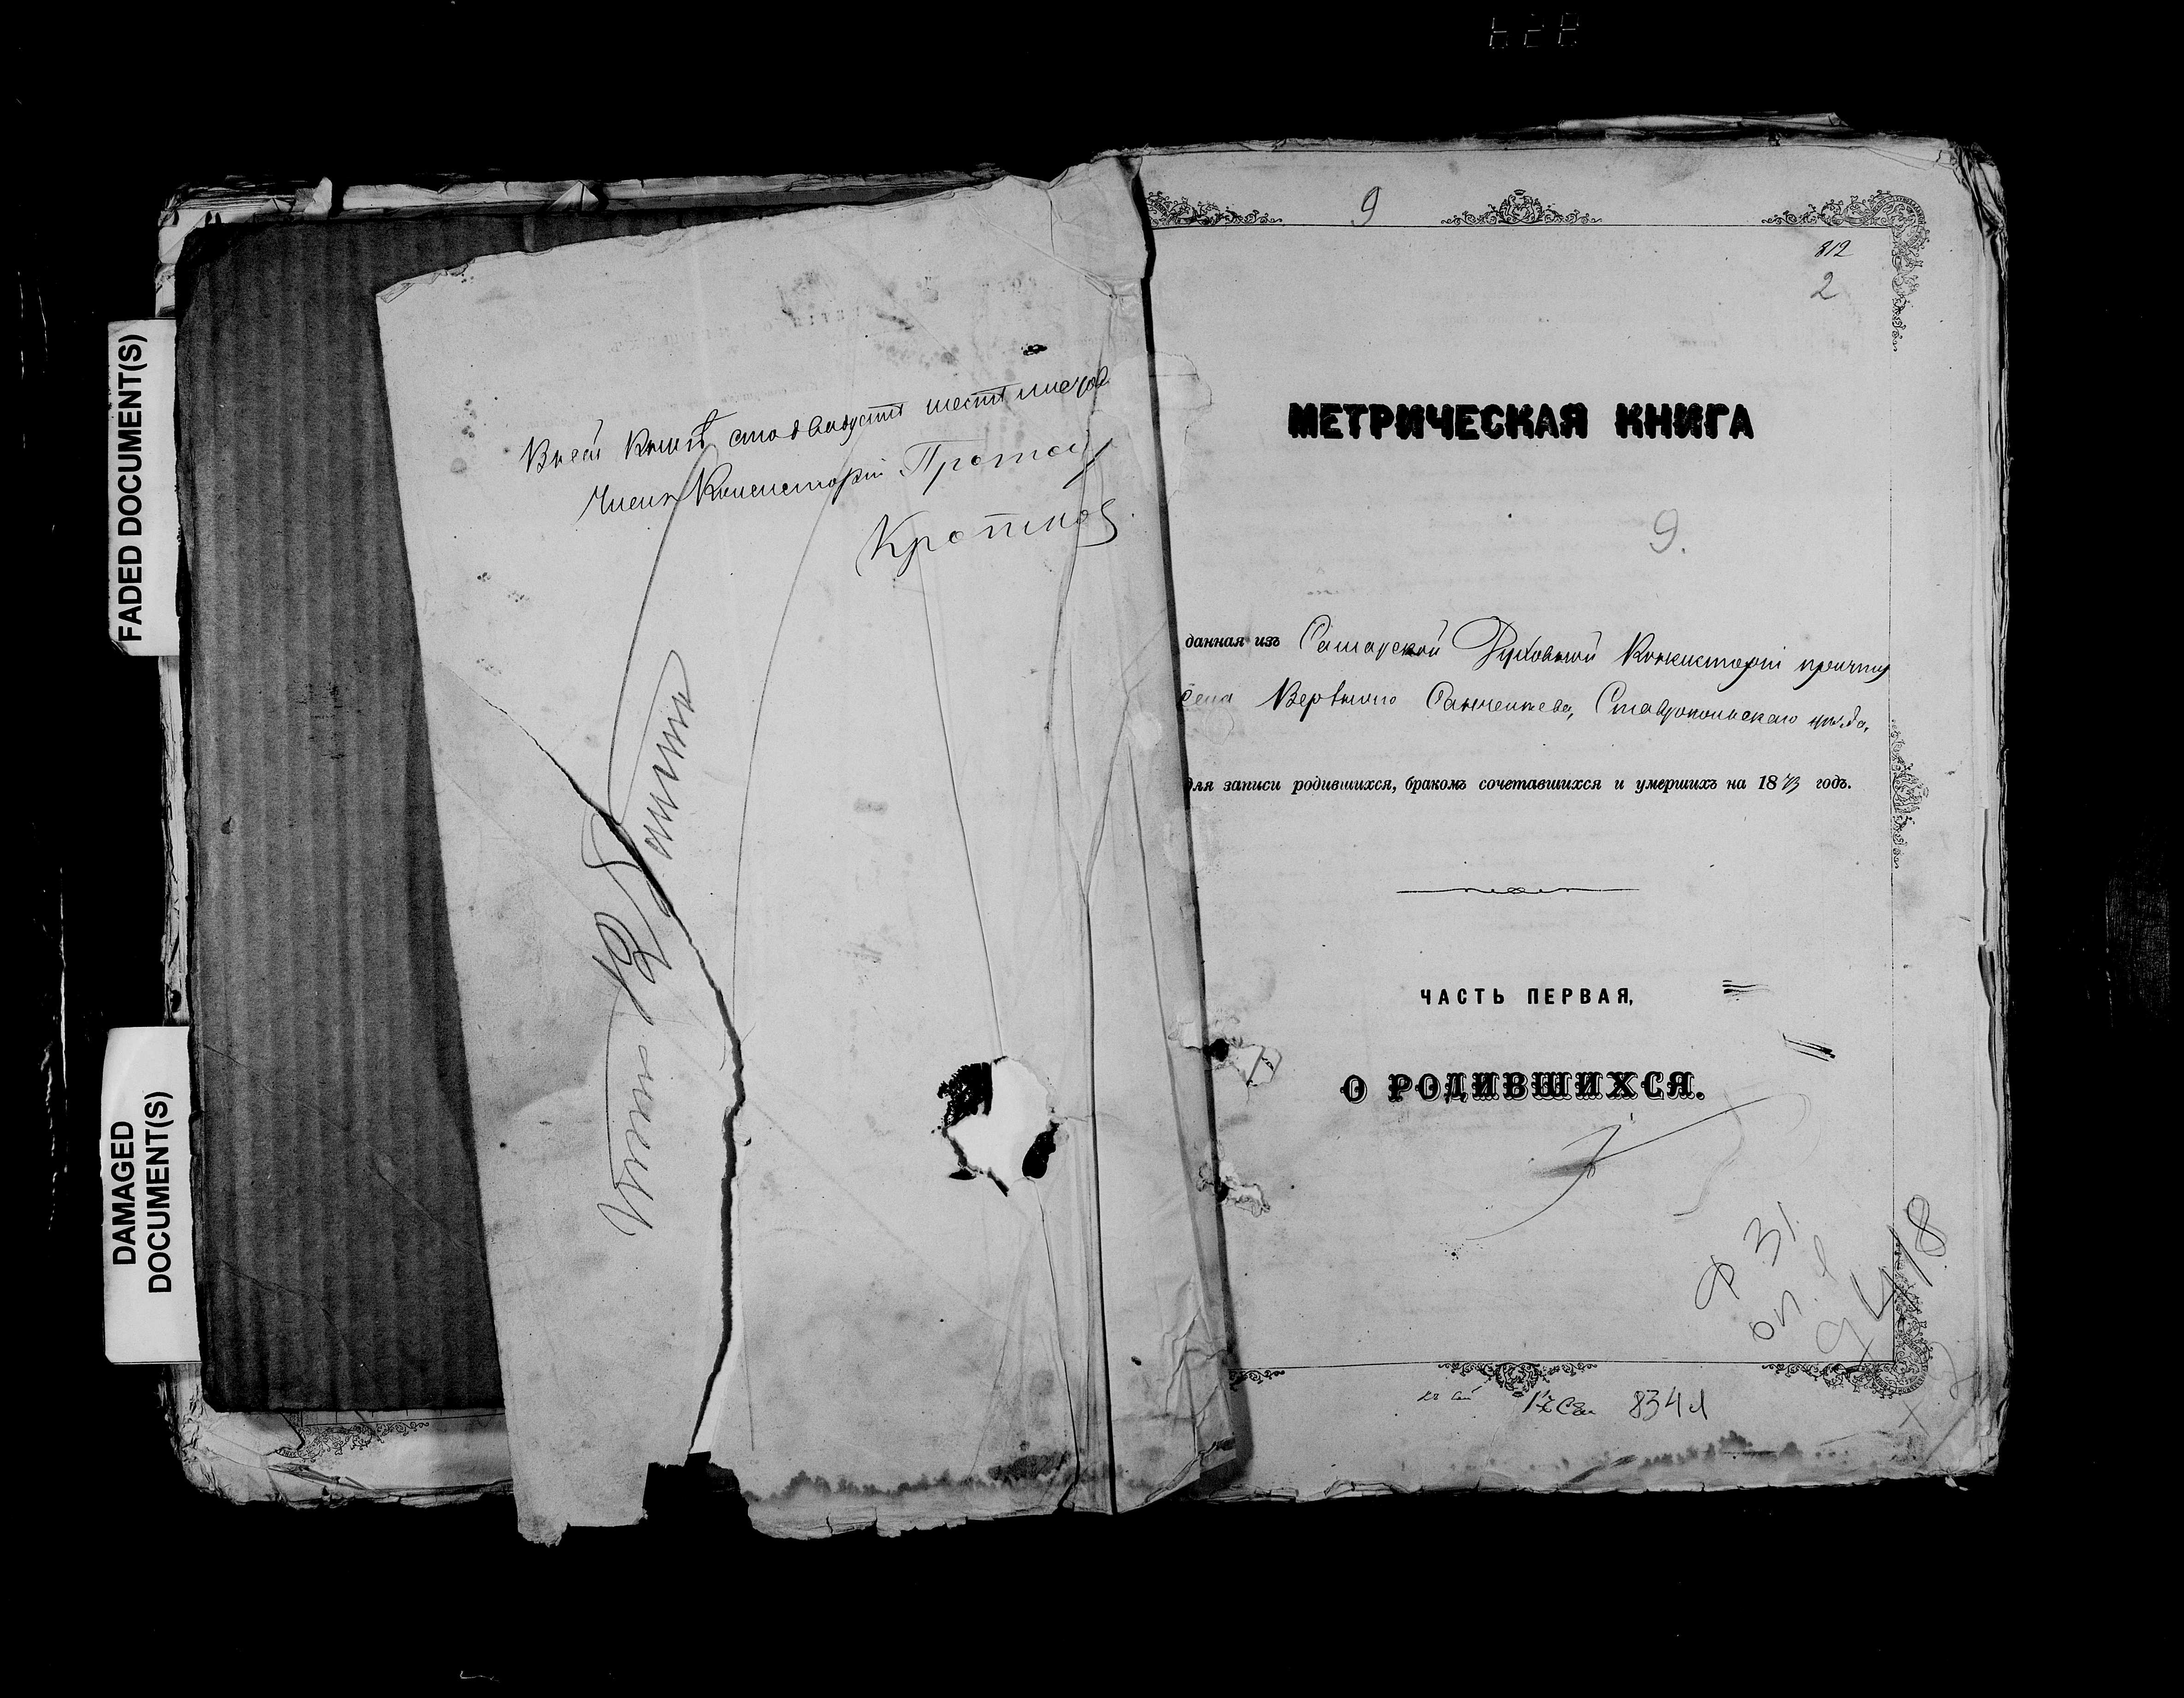 FADED DOCUMENT(S)
DAMAGED
DOCUMENT(S)
Въ сей книгѣ сто двадцать шесть листов
Членъ Консисторіи Протоіе
Кротков
9
812
2
МЕТРИЧЕСКАЯ КНИГА
9.
данная изъ Самарской Духовной Консисторіи причту
села Верхняго Санчелеева, Ставропольскаго уѣзда,
для записи родившихся, бракомъ сочетавшихся и умершихъ на 1873 годъ.
ЧАСТЬ ПЕРВАЯ,
О РОДИВШИХСЯ.
Ф 31
оп. 1
д 418
834 л